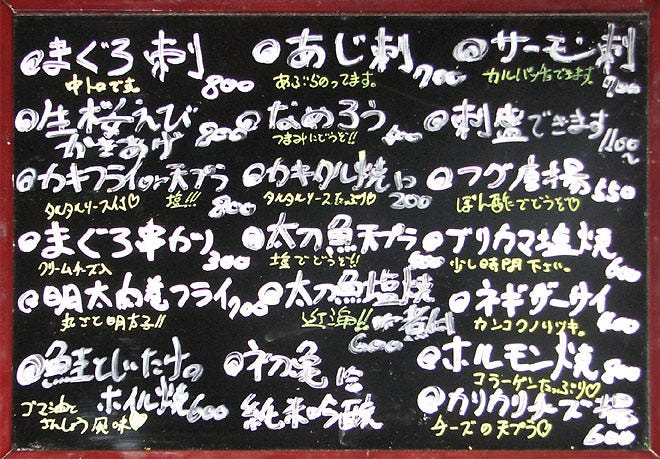 まぐろ刺 800
中トロです
あじ刺 700
あぶらのってます。
サーモン刺 700
カルパッチョできます。
生桜えび
かきあげ 800
なめろう 600
つまみにどうぞ!!
刺盛できます 1100〜
カキフライor天プラ 800
タルタルソース付♡ 塩!!!
カキタル焼 200
タルタルソースたっぷり♡
フグ唐揚 550
ぽん酢でどうぞ♡
まぐろ串カツ 300
クリームチーズ入
太刀魚天プラ 800
塩でどうぞ!!
ブリカマ塩焼 600
少し時間下さい。
明太内巻フライ 700
丸ごと明太子!!
太刀魚塩焼
or煮付 600
近海!!
ネギチャーサイ 400
カンコクノリツキ。
鮭としいたけの
ホイル焼 600
ゴマ油と
さんしょう風味♡
初亀 吟
純米吟醸
ホルモン焼 800
コラーゲンたっぷり♡
カリカリチーズ揚 600
チーズの天プラ♡